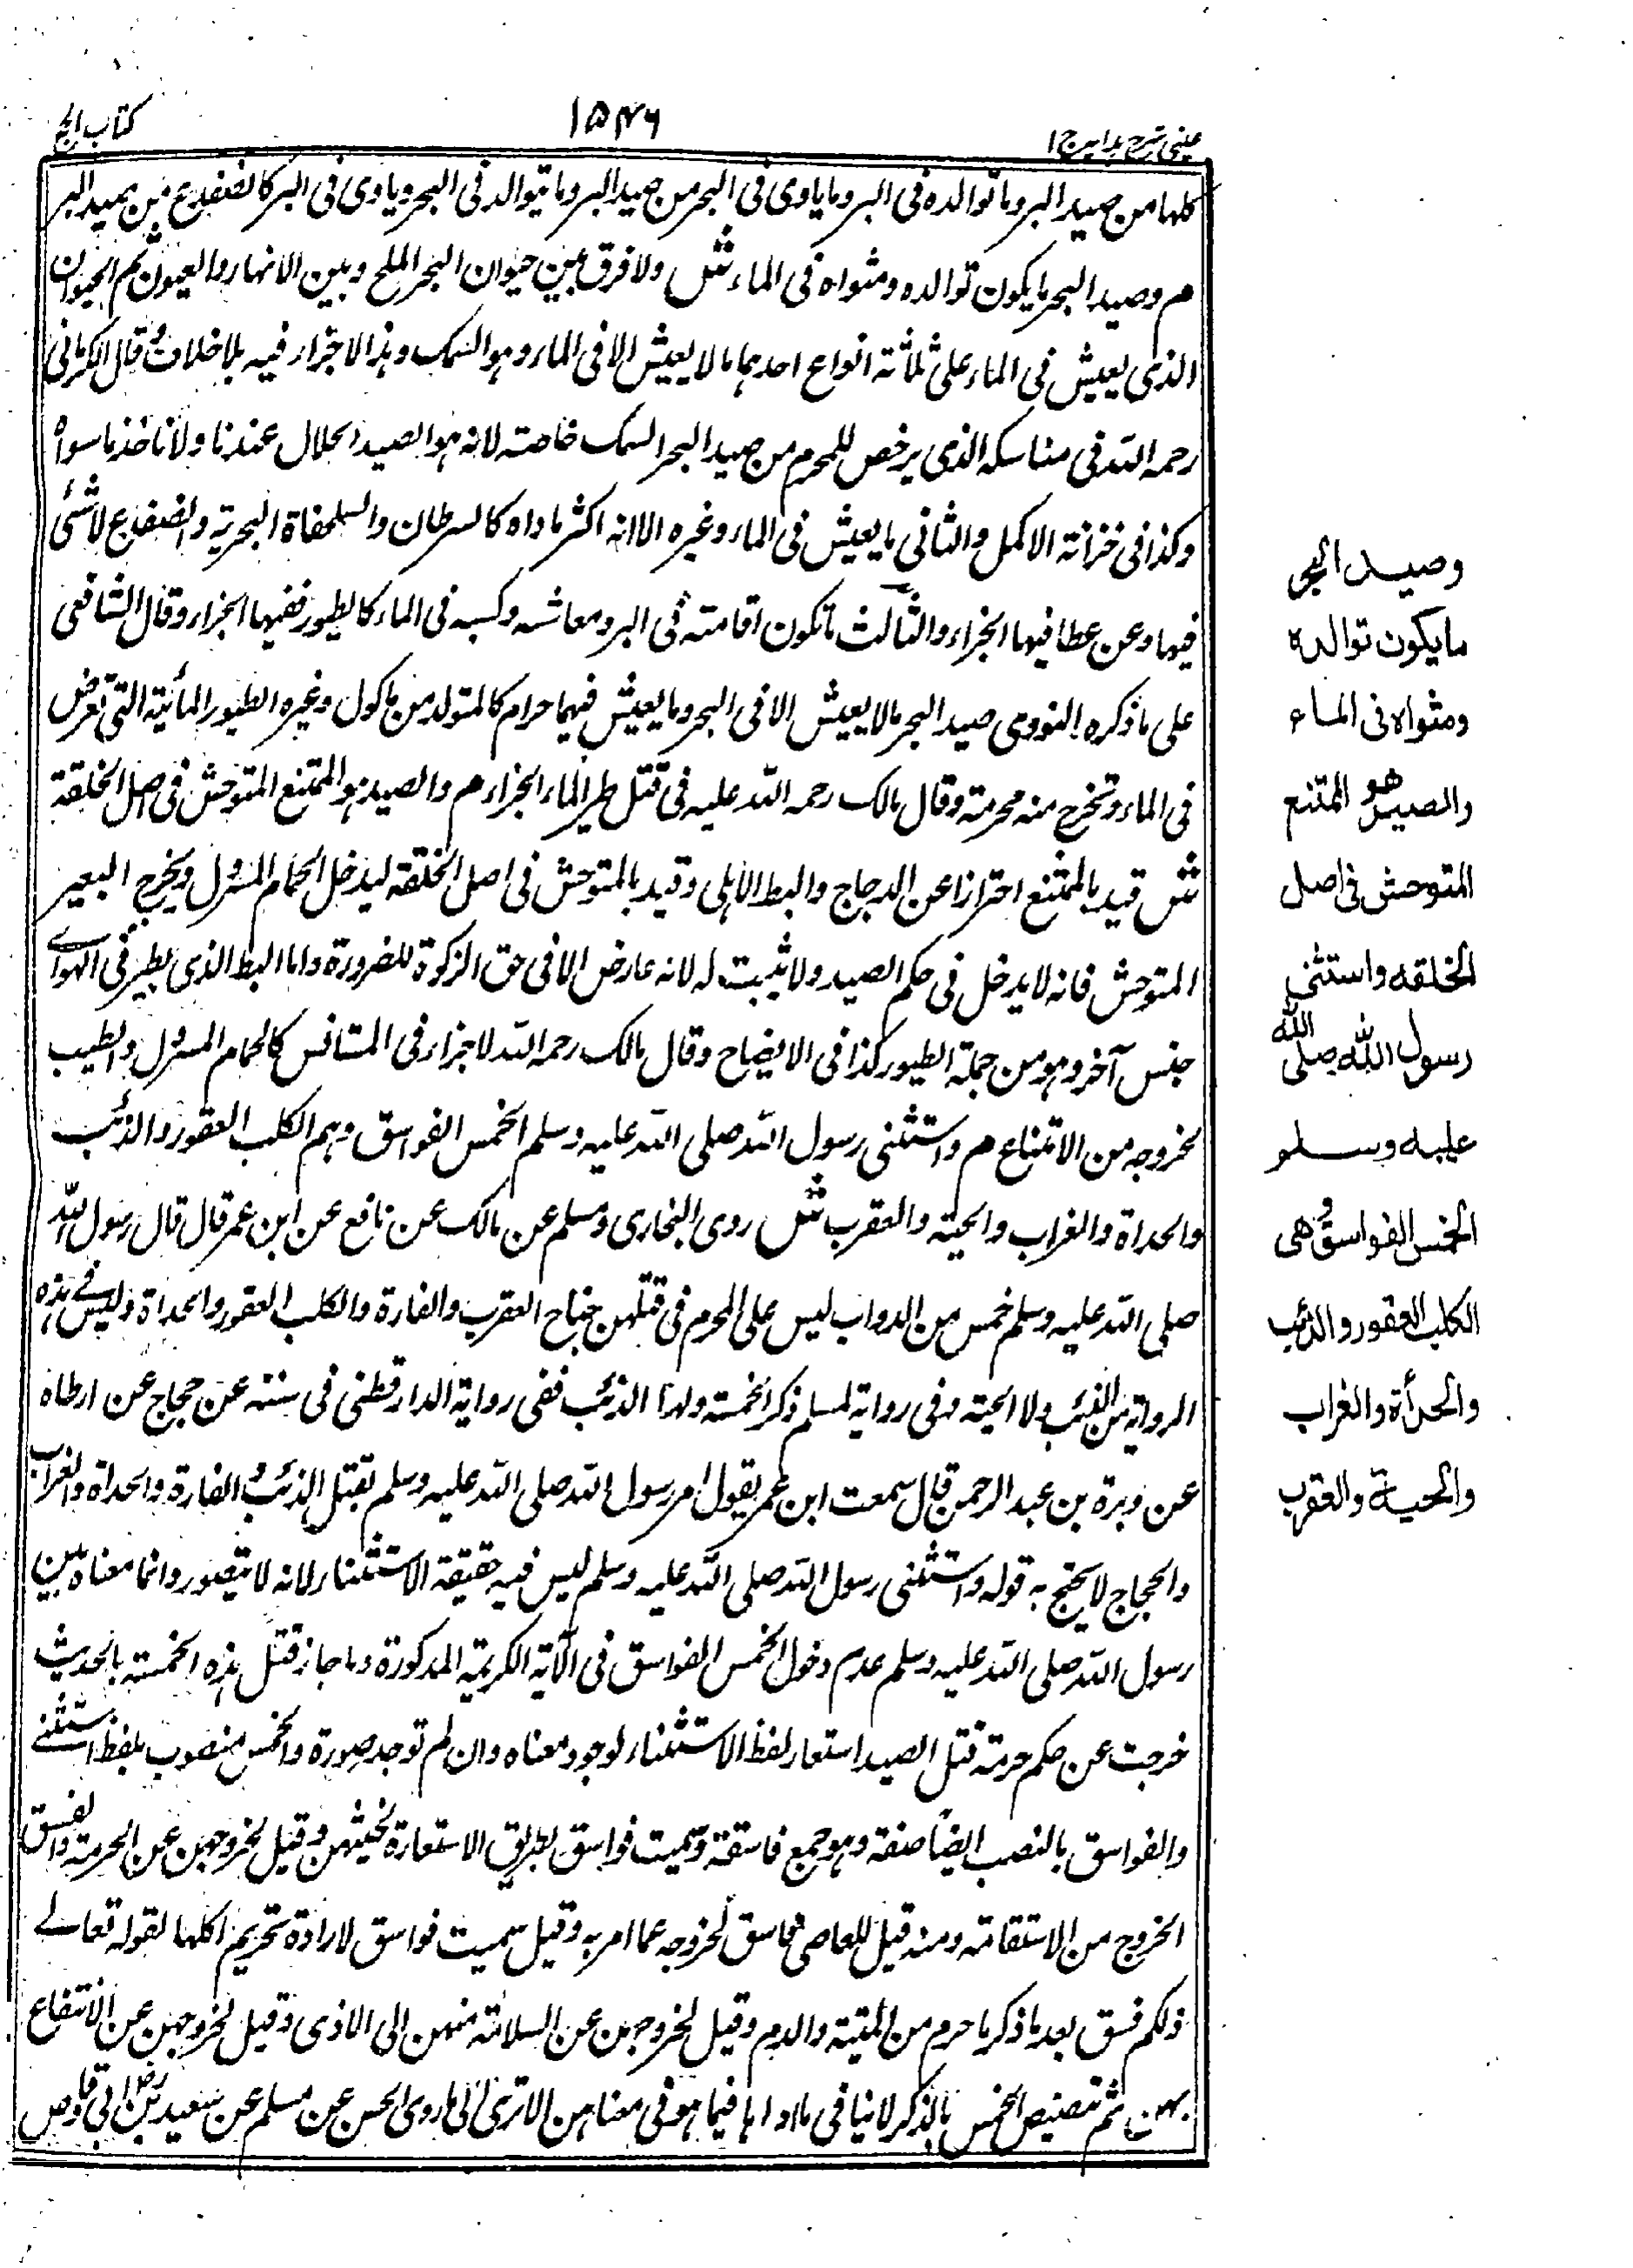 عینی شرح ہدایہ ج ۱
۱۵۴۶
کتاب الحج
کلها من صید البر وما توالده فی البر وما یاوی فی البحر من صید البر وما یتوالد فی البحر ویاوی فی البر کالضفدع من صید البر
م وصید البحر ما یکون توالده ومثواه فی الماء ش ولا فرق بین حیوان البحر الملح وبین الانهار والعیون ثم الحیوان
الذی یعیش فی الماء علی ثلاثة انواع احدها ما لا یعیش الا فی الماء وهو السمک وهذا لا جزاء فیه بلا خلاف وقال الکرمانی
رحمه الله فی مناسکه الذی یرخص للمحرم من صید البحر السمک خاصة لانه هو الصید الحلال عندنا ولا ناخذ ما سواه
وکذا فی خزانة الاکمل والثانی ما یعیش فی الماء وغیره الا انه اکثر ماواه کالسرطان والسلحفاة البحریة والضفدع لا شئ
فیها وعن عطا فیها الجزاء والثالث ما تکون اقامته فی البر ومعاشه وکسبه فی الماء کالطیور ففیها الجزاء وقال الشافعی
علی ما ذکره النووی صید البحر ما لا یعیش الا فی البحر وما یعیش فیهما حرام کالمتولد من ماکول وغیره الطیور المائیة التی تعرض
فی الماء وتخرج منه محرمة وقال مالک رحمه الله علیه فی قتل طیر الماء الجزاء م والصید هو الممتنع المتوحش فی اصل الخلقة
ش قید بالممتنع احترازا عن الدجاج والبط الاهلی وقید بالمتوحش فی اصل الخلقة لیدخل الحمام المسرول ویخرج البعیر
المتوحش فانه لا یدخل فی حکم الصید ولا یثبت له لانه عارض الا فی حق الزکوة للضرورة واما البط الذی یطیر فی الهواء
جنس آخر وهو من جملة الطیور کذا فی الایضاح وقال مالک رحمه الله لا جزاء فی المستانس کالحمام المسرول والطیب
لخروجه من الامتناع م واستثنی رسول الله صلی الله علیه وسلم الخمس الفواسق وهم الکلب العقور والذئب
والحداة والغراب والحیة والعقرب ش روی البخاری ومسلم عن مالک عن نافع عن ابن عمر قال قال رسول الله
صلی الله علیه وسلم خمس من الدواب لیس علی المحرم فی قتلهن جناح العقرب والفارة والکلب العقور والحداة ولیس فی هذه
الروایة من الذئب ولا الحیة وفی روایة لمسلم ذکر الخمسة ولهذا الذئب ففی روایة الدارقطنی فی سننه عن حجاج عن ارطاه
عن وبرة بن عبد الرحمن قال سمعت ابن عمر یقول امر رسول الله صلی الله علیه وسلم بقتل الذئب والفارة والحداة والغراب
والحجاج لا یحتج به قوله واستثنی رسول الله صلی الله علیه وسلم لیس فیه حقیقة الاستثناء لانه لا یتصور وانما معناه بین
رسول الله صلی الله علیه وسلم عدم دخول الخمس الفواسق فی الآیة الکریمة المذکورة وما جاز قتل هذه الخمسة بالحدیث
خرجت عن حکم حرمة قتل الصید استعار لفظ الاستثناء لوجود معناه وان لم توجد صورة والخمس منصوب بلفظ استثنی
والفواسق بالنصب ایضا صفة وهو جمع فاسقة وسمیت فواسق بطریق الاستعارة لخبثهن وقیل لخروجهن عن الحرمة والفسق
الخروج من الاستقامة ومنه قیل للعاصی فاسق لخروجه عما امر به وقیل سمیت فواسق لارادة تحریم اکلها لقوله تعالی
ذلکم فسق بعد ما ذکر ما حرم من المیتة والدم وقیل لخروجهن عن السلامة منهن الی الاذی وقیل لخروجهن عن الانتفاع
بهن ثم تنصیص الخمس بالذکر لا ینافی ما وراها فیما هو فی معناهن الا تری الی ما روی الحسن عن مسلم عن سعید بن ابی وقاص
وصید البحر
ما یکون توالده
ومثواه فی الماء
والصید هو الممتنع
المتوحش فی اصل
الخلقه واستثنی
رسول الله صلی الله
علیه وسلم
الخمس الفواسق وهی
الکلب العقور والذئب
والحدأة والغراب
والحیة والعقرب